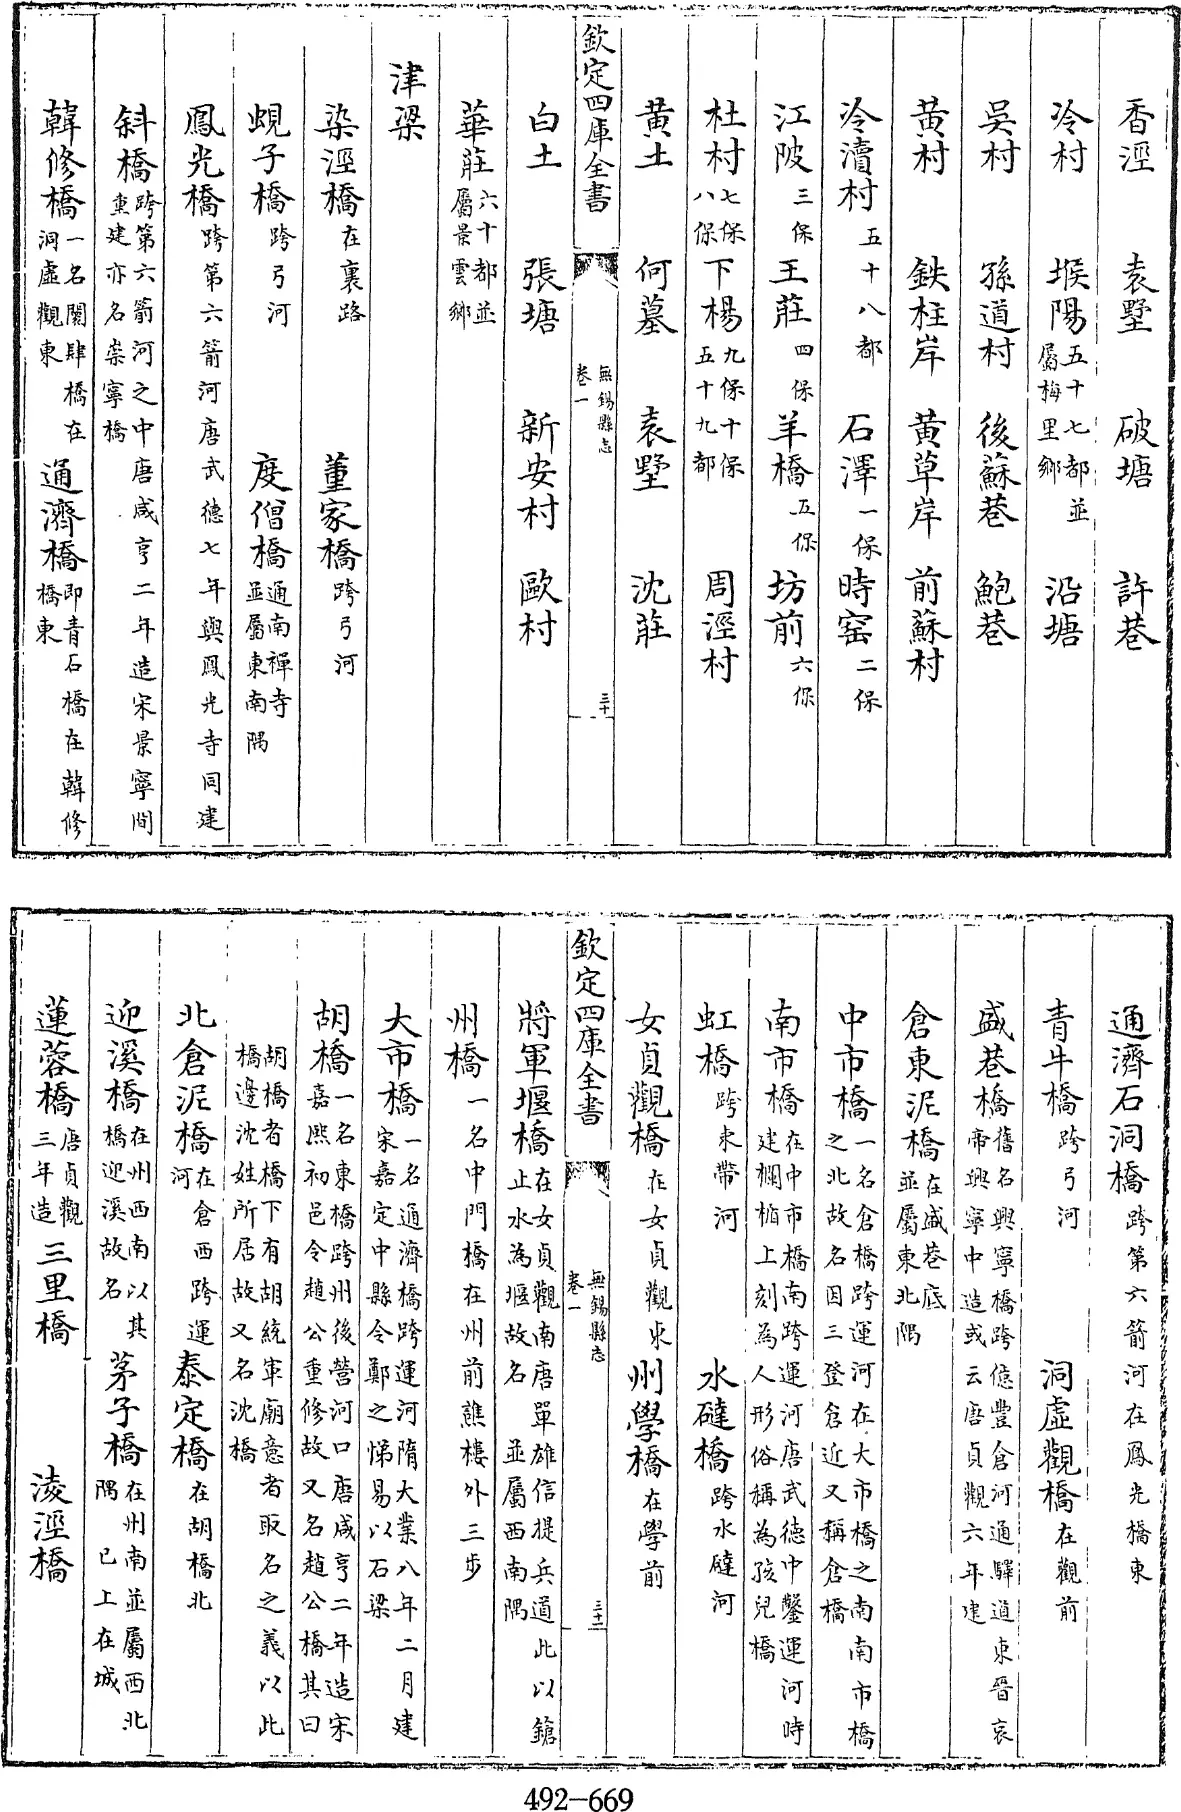 香涇　袁墅　破塘　許巷
冷村　堠陽五十七都並屬梅里鄉　沿塘
吳村　孫道村　後蘇巷　鮑巷
黃村　鉄柱岸　黃草岸　前蘇村
冷瀆村五十八都　石澤一保　時窑二保
江陂三保　王莊四保　羊橋五保　坊前六保
杜村七保八保　下楊九保十保五十九都　周涇村
黃土　何墓　袁墅　沈莊
欽定四庫全書　無錫縣志卷一　三十
白土　張塘　新安村　歐村
華莊六十都並屬景雲鄉
津梁
染涇橋在裏路　董家橋跨弓河
蜆子橋跨弓河　度僧橋通南禪寺並屬東南隅
鳳光橋跨第六箭河唐武德七年與鳳光寺同建
斜橋跨第六箭河之中唐咸亨二年造宋景寧間重建亦名崇寧橋
韓修橋一名闤肆橋在洞虛觀東　通濟橋即青石橋在韓修橋東
通濟石洞橋跨第六箭河在鳳光橋東
青牛橋跨弓河　洞虛觀橋在觀前
盛巷橋舊名興寧橋跨億豐倉河通驛道東晉哀帝興寧中造或云唐貞觀六年建
倉東泥橋在盛巷底並屬東北隅
中市橋一名倉橋跨運河在大市橋之南南市橋之北故名因三登倉近又稱倉橋
南市橋在中市橋南跨運河唐武德中鑿運河時建欄楯上刻為人形俗稱為孩兒橋
虹橋跨束帶河　水䃮橋跨水䃮河
女貞觀橋在女貞觀東　州學橋在學前
欽定四庫全書　無錫縣志卷一　三十一
將軍堰橋在女貞觀南唐單雄信提兵道此以鎗止水為堰故名並屬西南隅
州橋一名中門橋在州前譙樓外三步
大市橋一名通濟橋跨運河隋大業八年二月建宋嘉定中縣令鄭之悌易以石梁
胡橋一名東橋跨州後營河口唐咸亨二年造宋嘉熙初邑令趙公重修故又名趙公橋其曰
胡橋者橋下有胡統軍廟意者取名之義以此橋邊沈姓所居故又名沈橋
北倉泥橋在倉西跨運河　泰定橋在胡橋北
迎溪橋在州西南以其橋迎溪故名　茅子橋在州南並屬西北隅已上在城
蓮蓉橋唐貞觀三年造　三里橋　淩涇橋
492—669